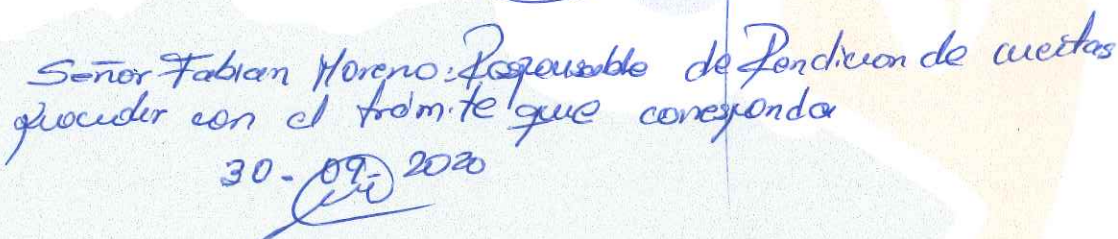 Señor Fabian Moreno: Responsable de Rendicion de cuentas
proceder con el trámite que corresponda
30-09-2020